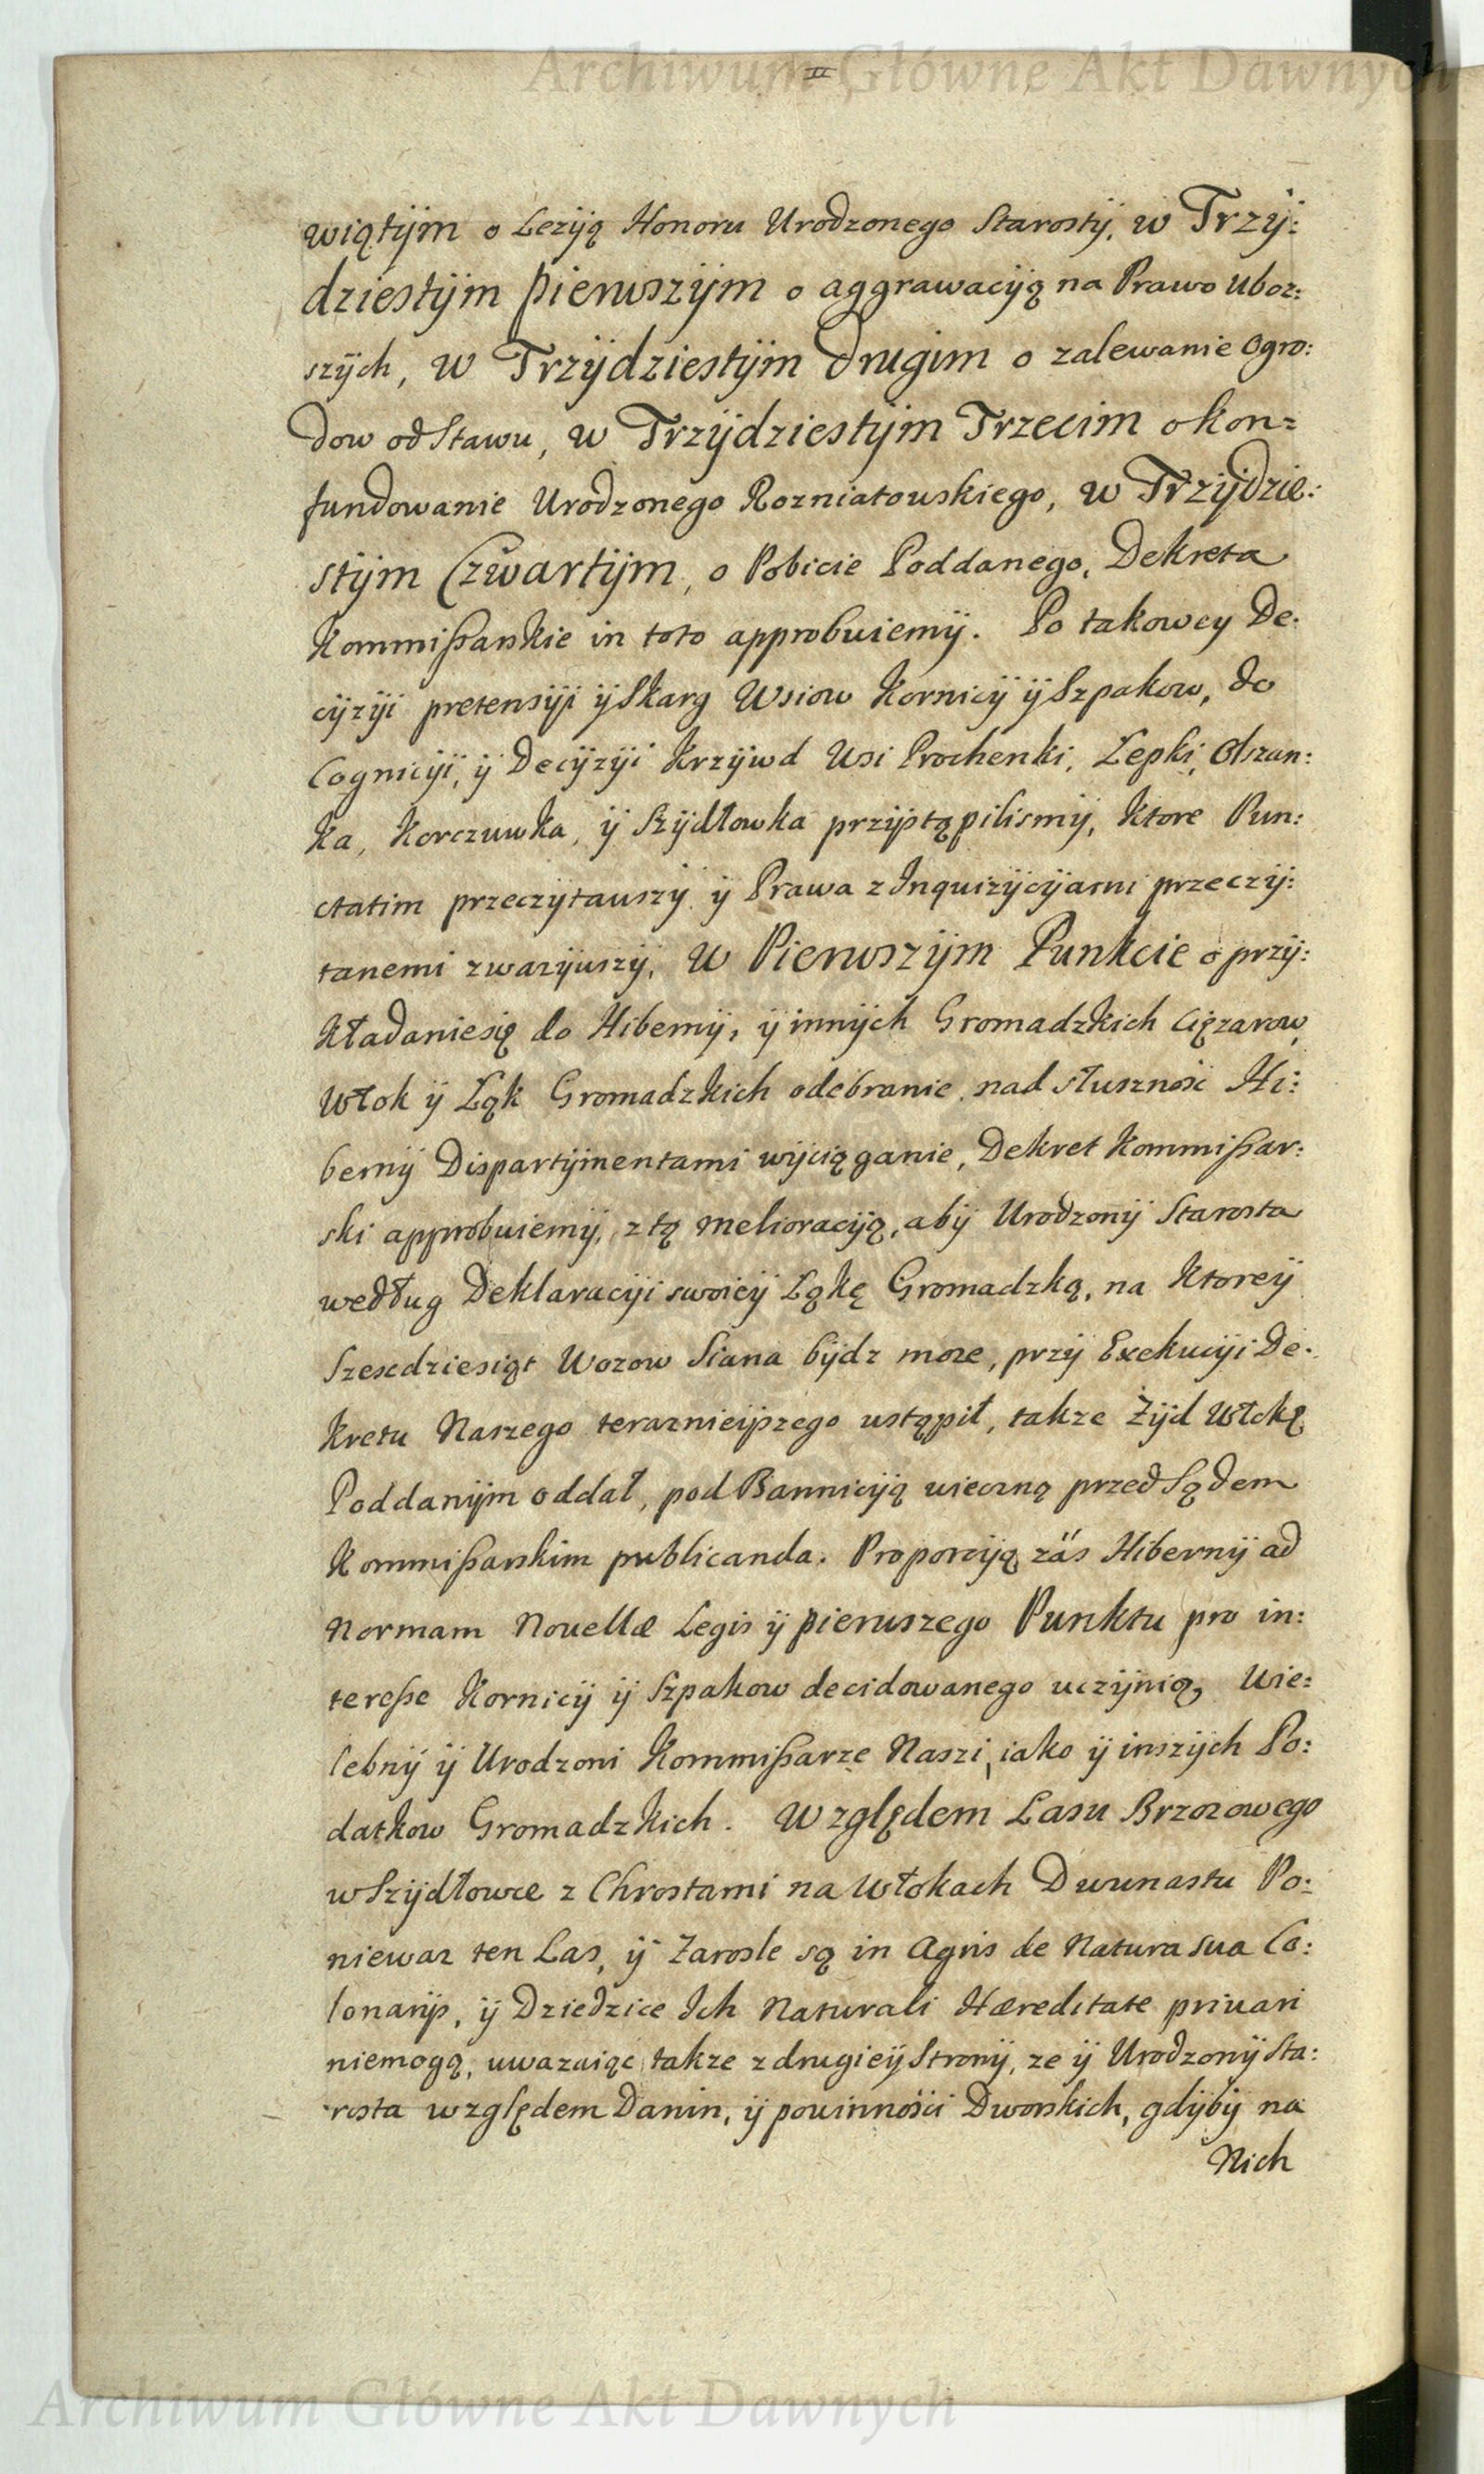 Archiwum Główne Akt Dawnych
II
wiątÿm o Lezÿą Honoru Urodzonego Starostÿ, w Trzÿ:
dziestÿm pierwszÿm o aggrawacÿą na Prawo Uboz:
szÿch, w Trzÿdziestÿm drugim o zalewanie Ogro:
dow od Stawu, w Trzÿdziestÿm Trzecim o kon=
fundowanie Urodzonego Rozniatowskiego, w Trzÿdzie:
stÿm Czwartÿm, o Pobicie Poddanego, Dekreta
Kommißarskie in toto approbuiemÿ. Po takowey De:
cÿzÿi pretensÿi ÿ Skarg Wsiow Kornicÿ ÿ Szpakow, do
Cognicÿi, ÿ Decÿzÿi Krzÿwd Wsi Prochenki, Lepki, Olszan:
ka, Korczuwka, ÿ Szÿdłowka przÿstąpilismÿ, ktore Pun:
ctatim przeczÿtawszÿ ÿ Prawa z Inquizÿcÿami przeczÿ:
tanemi zwazÿwszÿ, W Pierwszÿm Punkcie o przÿ:
kładaniesię do Hibernÿ, ÿ innÿch Gromadzkich Cięzarow,
Włok ÿ Ląk Gromadzkich odebranie, nad słusznośc Hi:
bernÿ Dispartÿmentami wÿciąganie, Dekret Kommißar:
ski approbuiemÿ, z tą melioracÿą, abÿ Urodzonÿ Starosta
według Deklaracÿi swoieÿ Ląkę Gromadzką, na ktoreÿ
Szescdziesiąt Wozow Siana bÿdz moze, przÿ Exekucÿi De:
kretu Naszego teraznieÿszego ustąpił, takze Zÿd Włokę
Poddanÿm oddał, pod Bannicÿą wieczną przed Sądem
Kommißarskim publicanda. Proporcÿą zaś Hibernÿ ad
Normam Novellæ Legis ÿ pierwszego Punktu pro in:
tereße Kornicÿ ÿ Szpakow decidowanego uczÿnią, Wie:
lebnÿ ÿ Urodzoni Kommißarze Naszi, iako ÿ inszÿch Po:
datkow Gromadzkich. Względem Lasu Brzozowego
w Szÿdłowce z Chrostami na Włokach Dwunastu Po:
niewaz ten Las, ÿ Zarosle są in Agris de Natura sua Co:
lonarÿs, ÿ Dziedzice Ich Naturali Hæreditate privari
niemogą, uwazaiąc takze z drugieÿ Stronÿ, ze ÿ Urodzonÿ Sta:
rosta względem Danin, ÿ powinności Dworskich, gdÿbÿ na
Nich
Archiwum Główne Akt Dawnych